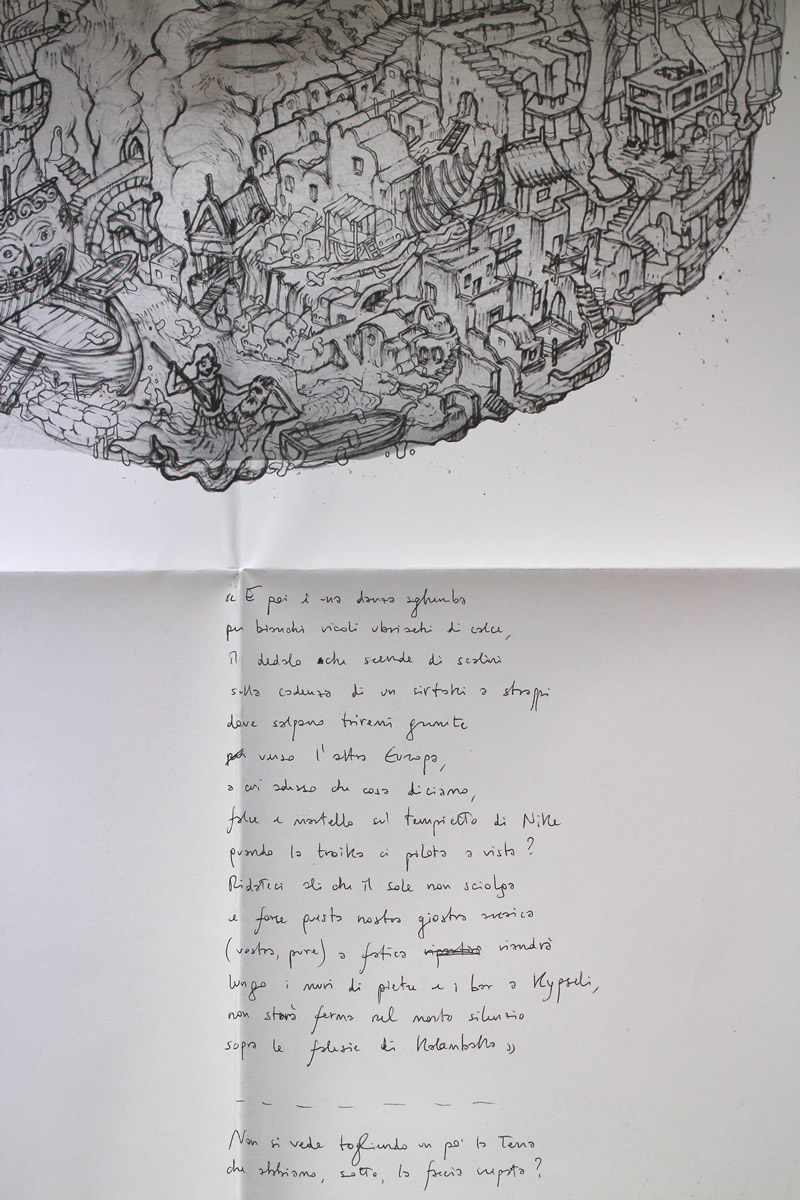 « E poi è una danza sghemba
per bianchi vicoli ubriachi di calce,
il dedalo che scende di scalini
sulla cadenza di un sirtaki a strappi
dove salpano triremi gremite
verso l'altra Europa,
a cui adesso che cosa diciamo,
falce e martello sul tempietto di Nike
quando la troika ci pilota a vista?
Ridateci ali che il sole non sciolga
e forse questa nostra giostra
(vostra, pure) a fatica riandrà
lungo i muri di pietre e i bar a Kypseli,
non starà ferma nel morto silenzio
sopra le falesie di Kalambaka »
Non si vede togliendo un po' la Terra
che abbiamo, sotto, la faccia